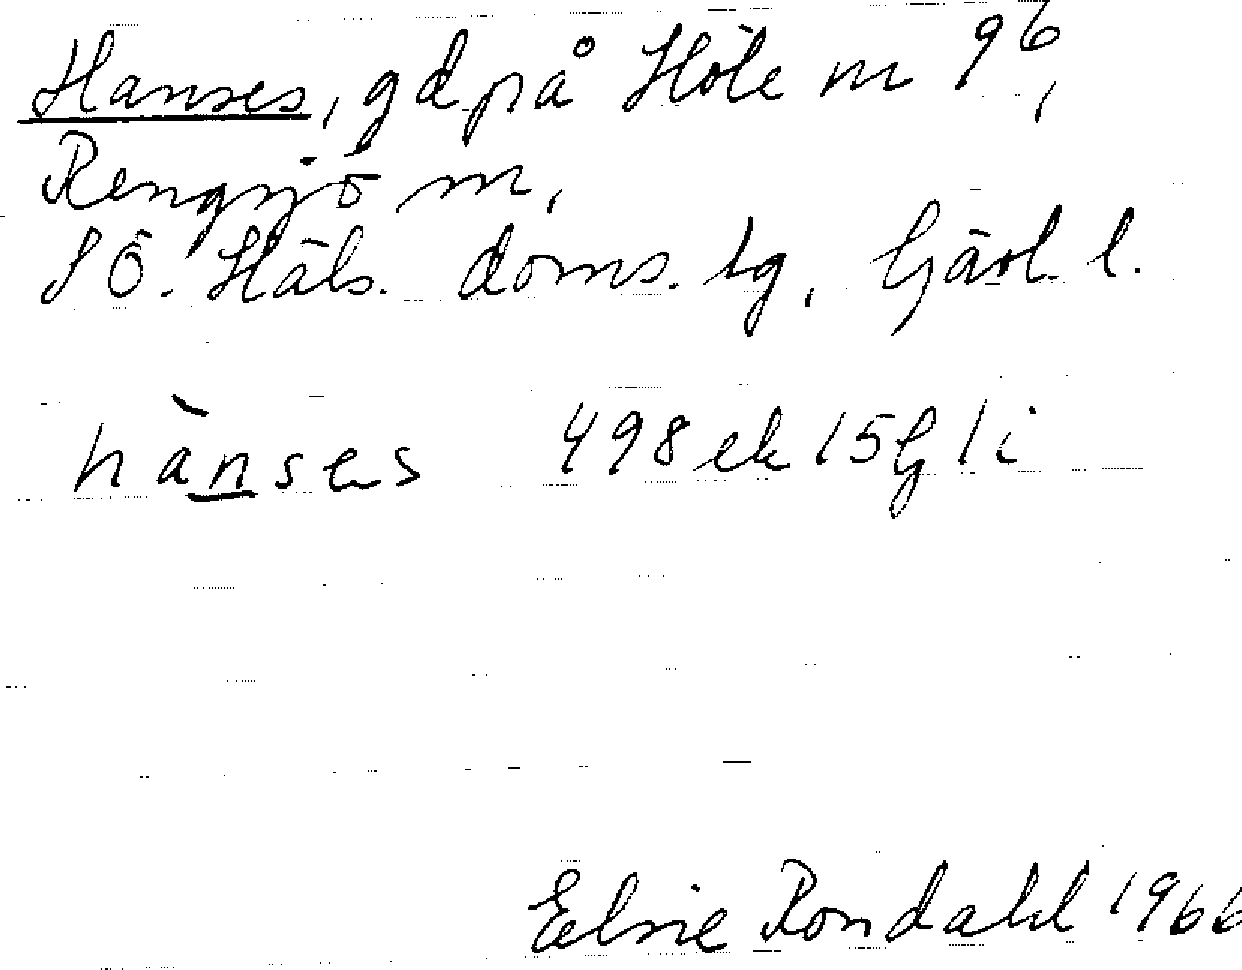 Hanses, gd på Höle nr 9⁶,
Rengsjö sn,
SÖ. Häls. doms. tg, Gävl. l.
hànses 498 ek 15G 1 i
Elsie Rondahl 1966